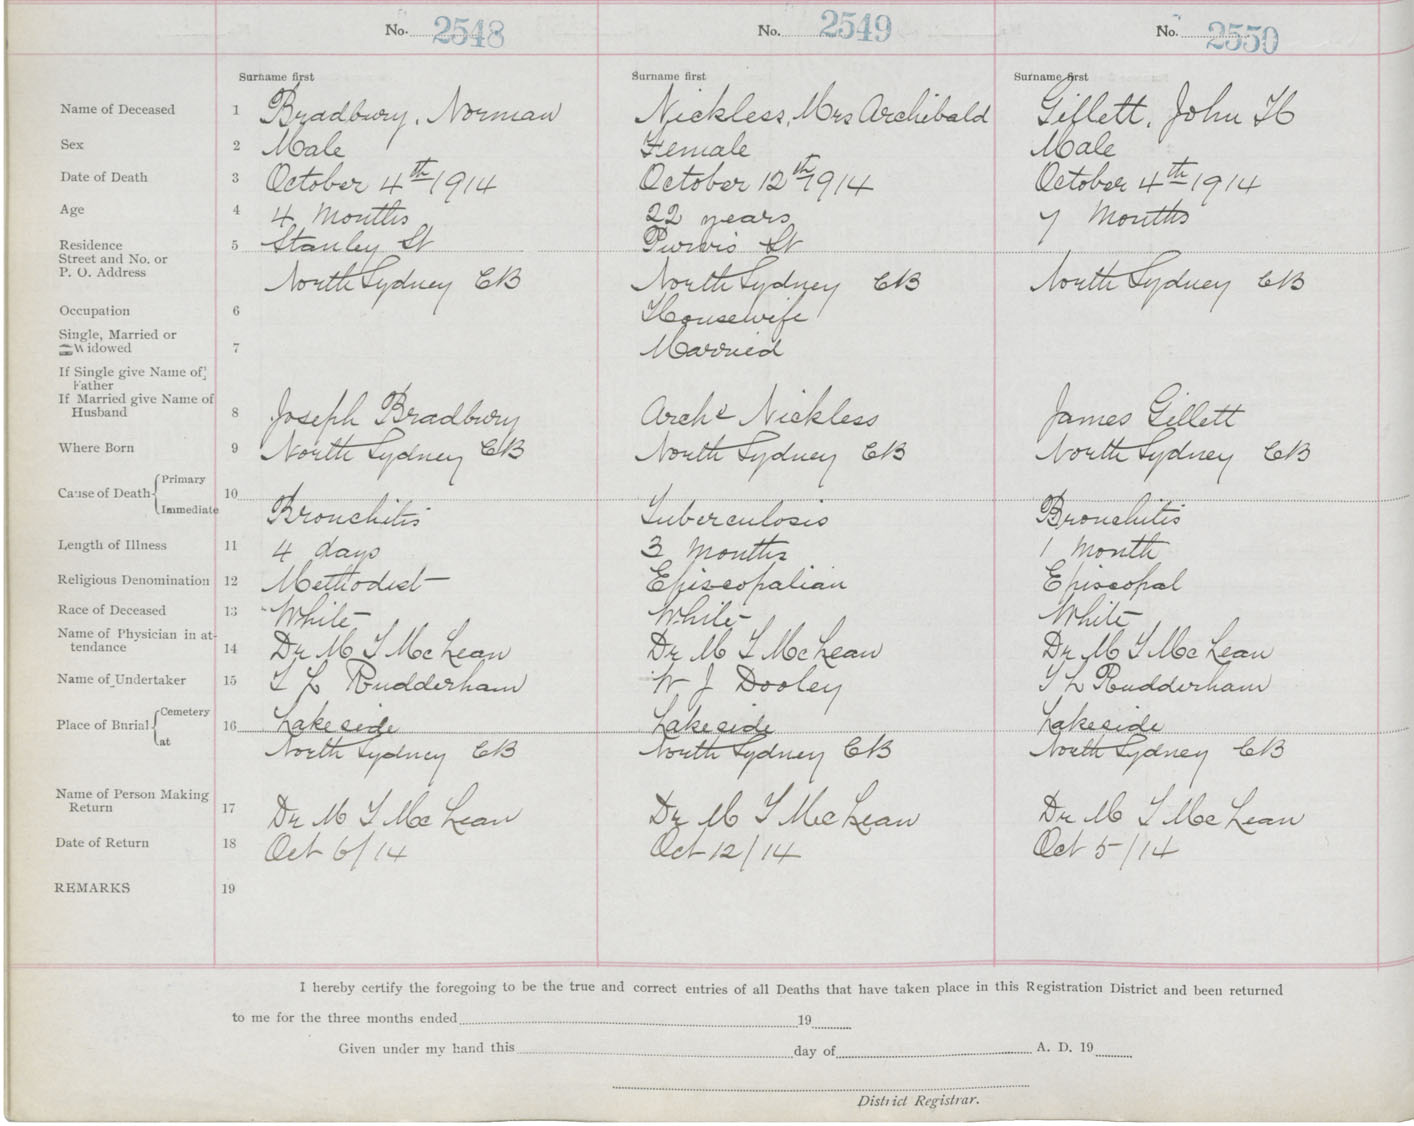 No. 2548 No. 2549 No. 2550
Surname first Surname first Surname first
Name of Deceased 1 Bradbury, Norman Nickless, Mrs Archibald Gillett, John H
Sex 2 Male Female Male
Date of Death 3 October 4th 1914 October 12th 1914 October 4th 1914
Age 4 4 Months 22 years 7 Months
Residence 5 Stanley St Purvis St
Street and No. or
P. O. Address North Sydney CB North Sydney CB North Sydney CB
Occupation 6 Housewife
Single, Married or
Widowed 7 Married
If Single give Name of
Father
If Married give Name of
Husband 8 Joseph Bradbury Archd Nickless James Gillett
Where Born 9 North Sydney CB North Sydney CB North Sydney CB
Cause of Death { Primary 10
Immediate Bronchitis Tuberculosis Bronchitis
Length of Illness 11 4 days 3 months 1 month
Religious Denomination 12 Methodist Episcopalian Episcopal
Race of Deceased 13 White White White
Name of Physician in at-
tendance 14 Dr M T McLean Dr M T McLean Dr M T McLean
Name of Undertaker 15 T L Rudderham W J Dooley T L Rudderham
Place of Burial { Cemetery 16 Lakeside Lakeside Lakeside
at North Sydney CB North Sydney CB North Sydney CB
Name of Person Making
Return 17 Dr M T McLean Dr M T McLean Dr M T McLean
Date of Return 18 Oct 6/14 Oct 12/14 Oct 5/14
REMARKS 19
I hereby certify the foregoing to be the true and correct entries of all Deaths that have taken place in this Registration District and been returned
to me for the three months ended 19
Given under my hand this day of A. D. 19
District Registrar.